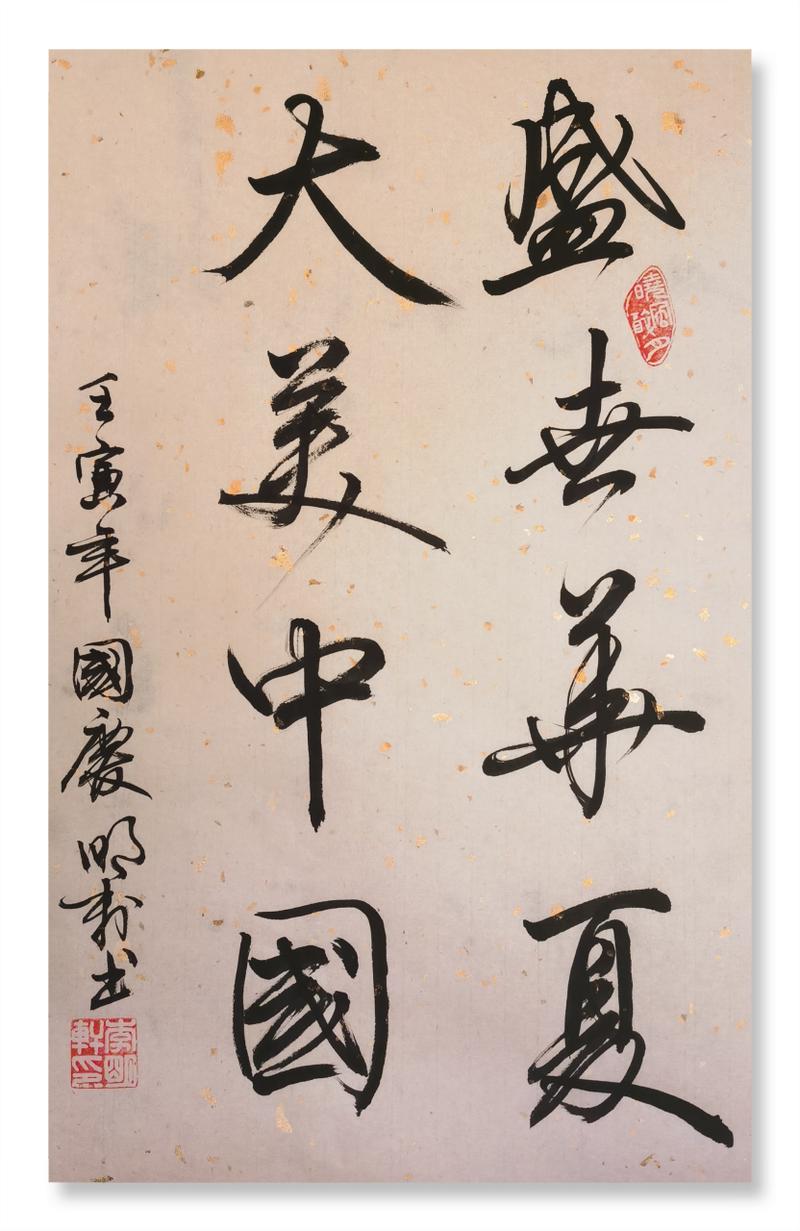 盛世華夏
大美中國
壬寅年國慶明書